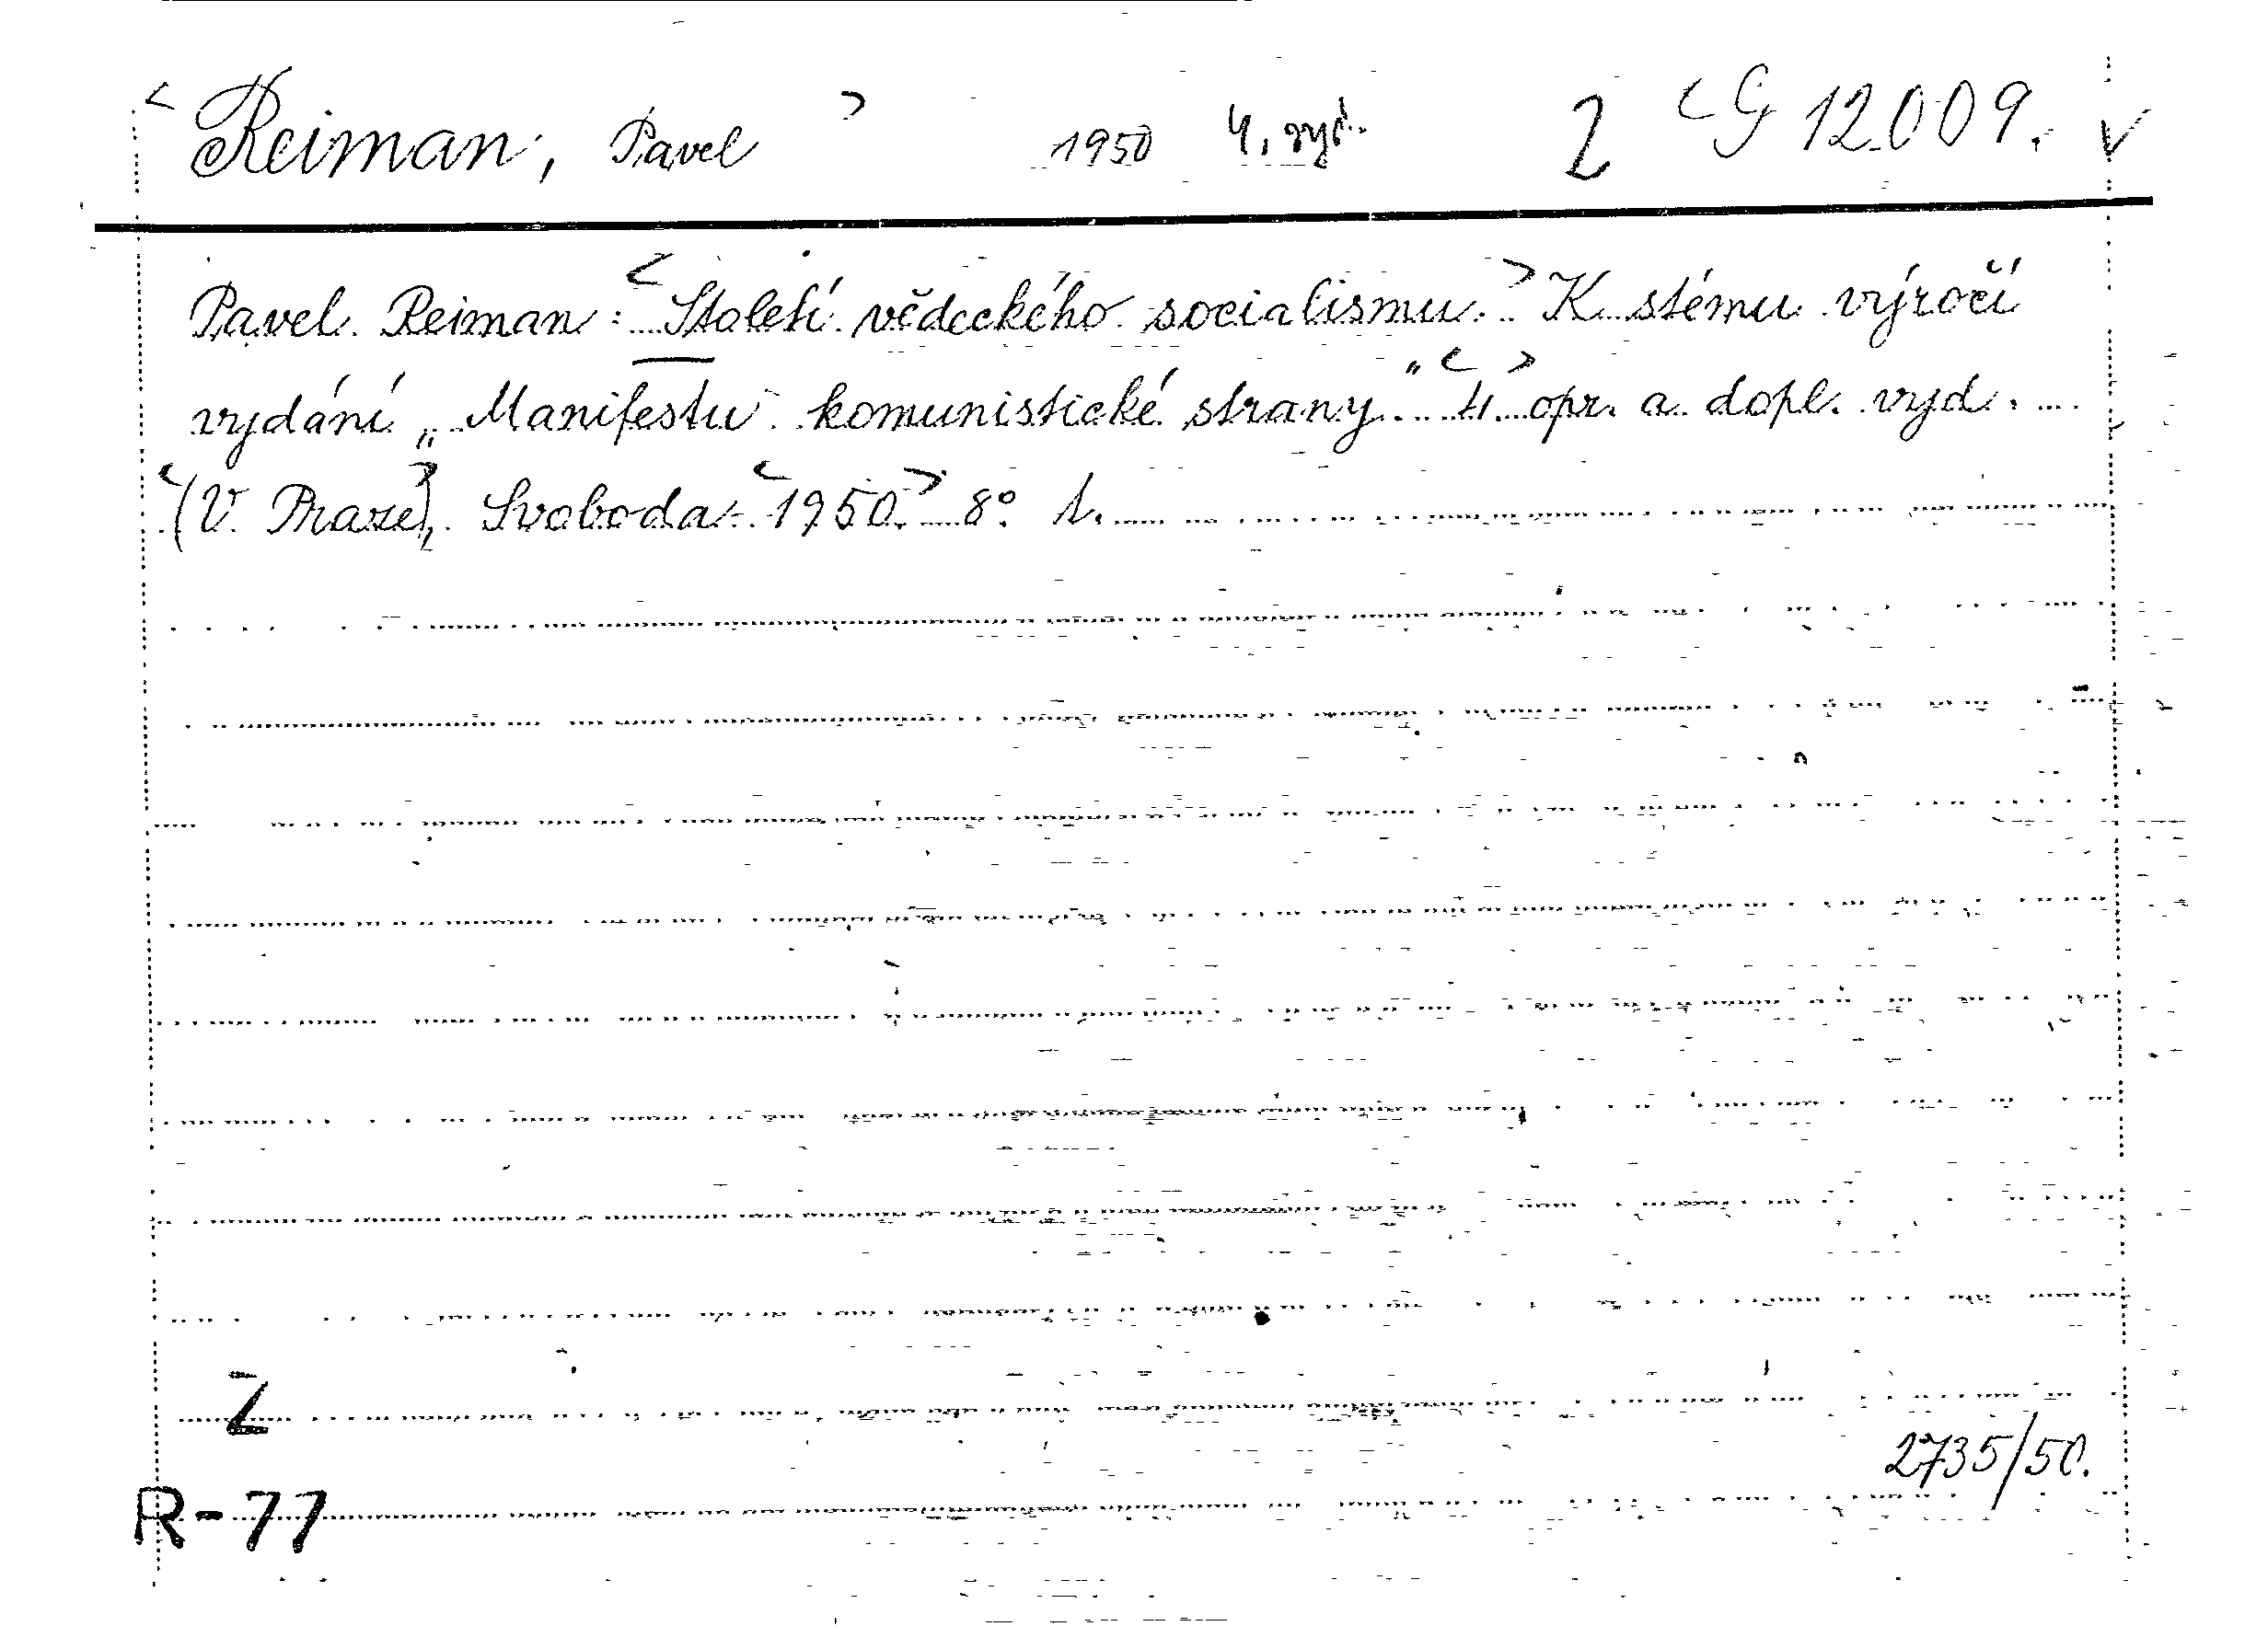 < Reiman, Pavel > 1950 4. vyd. Z < G 12.009. v
Pavel Reiman: < Století vědeckého socialismu. > K stému výročí
vydání „Manifestu komunistické strany." < 4. > opr. a dopl. vyd.
< (V Praze), > Svoboda < 1950. > 8° 1.
Z
2735/50.
R-77